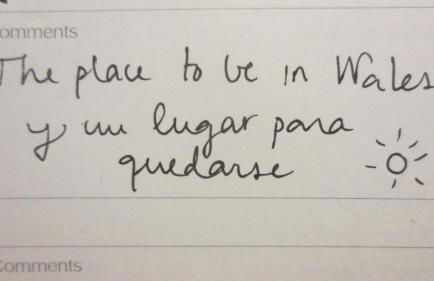 omments
The place to be in Wales
y un lugar para
quedarse
Comments